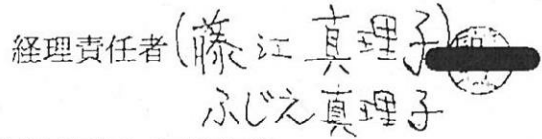 経理責任者(藤江真理子)
ふじえ真理子